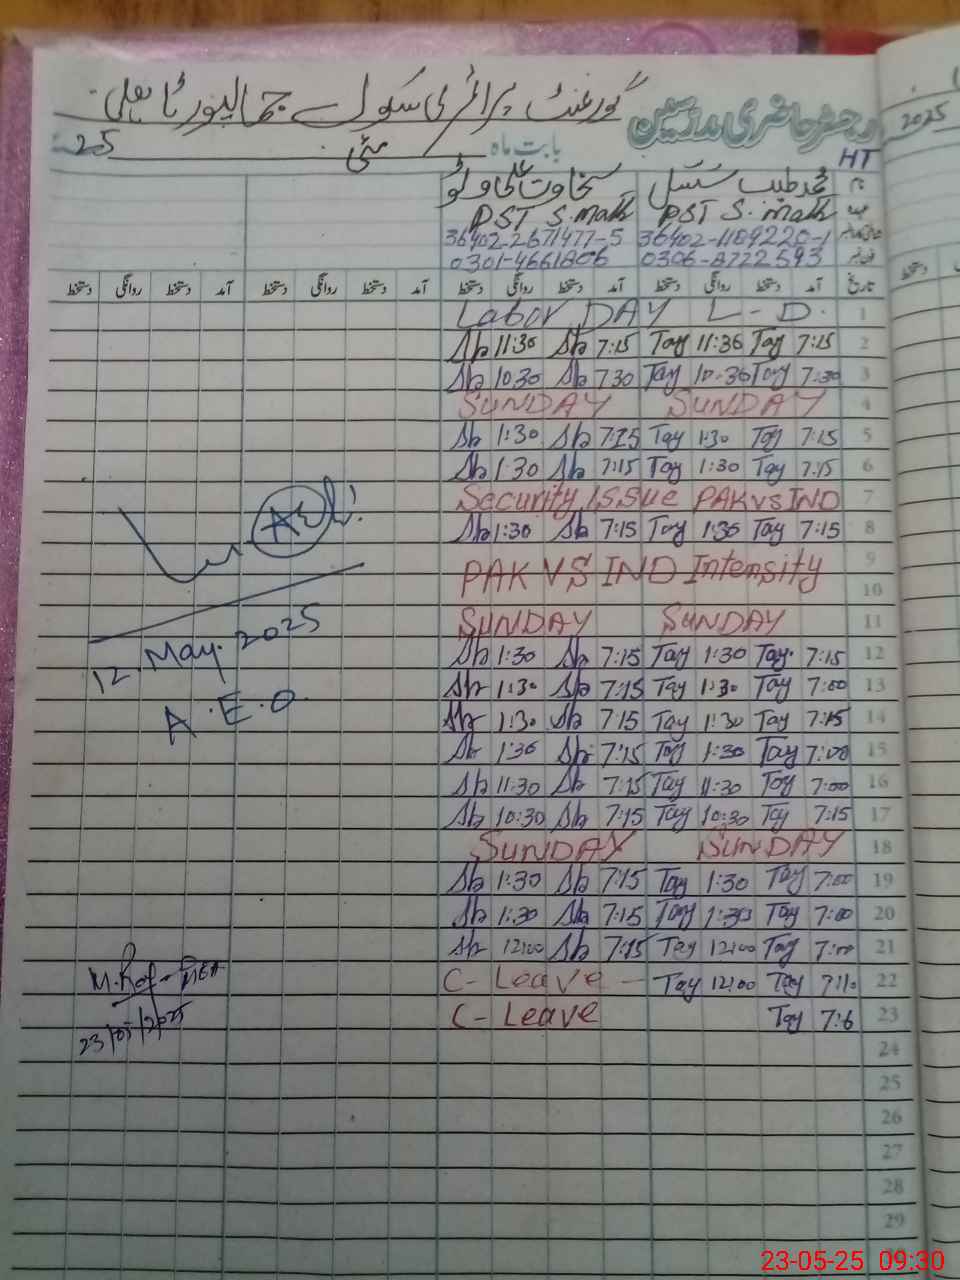 رجسٹر حاضری مدرسین گورنمنٹ پرائمری سکول جمالپور ٹاہلی
2025
بابت ماہ مئی 25
HT
نام محمد طیب سخاوت علی وٹو
PST S.Math PST S.Math
36402-1189220-1 36402-2671477-5
0306-8722593 0301-4661806
تاریخ آمد دستخط روانگی دستخط آمد دستخط روانگی دستخط آمد دستخط روانگی دستخط آمد دستخط روانگی دستخط
Labor DAY L-D. 1
Sh 11:30 Sh 7:15 Tay 11:30 Tay 7:15 2
Sh 10:30 Sh 7:30 Tay 10:30 Tay 7:30 3
SUNDAY SUNDAY 4
Sh 1:30 Sh 7:15 Tay 1:30 Tay 7:15 5
Sh 1:30 Sh 7:15 Tay 1:30 Tay 7:15 6
Security Issue PAK VS IND 7
Sh 1:30 Sh 7:15 Tay 1:30 Tay 7:15 8
PAK VS IND Intensity 9
10
SUNDAY SUNDAY 11
Sh 1:30 Sh 7:15 Tay 1:30 Tay 7:15 12
Sh 1:30 Sh 7:15 Tay 1:30 Tay 7:00 13
Sh 1:30 Sh 7:15 Tay 1:30 Tay 7:15 14
Sh 1:30 Sh 7:15 Tay 1:30 Tay 7:00 15
Sh 11:30 Sh 7:15 Tay 11:30 Tay 7:00 16
Sh 10:30 Sh 7:15 Tay 10:30 Tay 7:15 17
SUNDAY SUNDAY 18
Sh 1:30 Sh 7:15 Tay 1:30 Tay 7:00 19
Sh 1:30 Sh 7:15 Tay 1:30 Tay 7:00 20
Sh 12:00 Sh 7:15 Tay 12:00 Tay 7:00 21
C-Leave - Tay 12:00 Tay 7:10 22
C-Leave Tay 7:6 23
24
25
26
27
28
29
12.May.2025
A.E.O.
M.Raf- MEA
23/05/2025
23-05-25 09:30